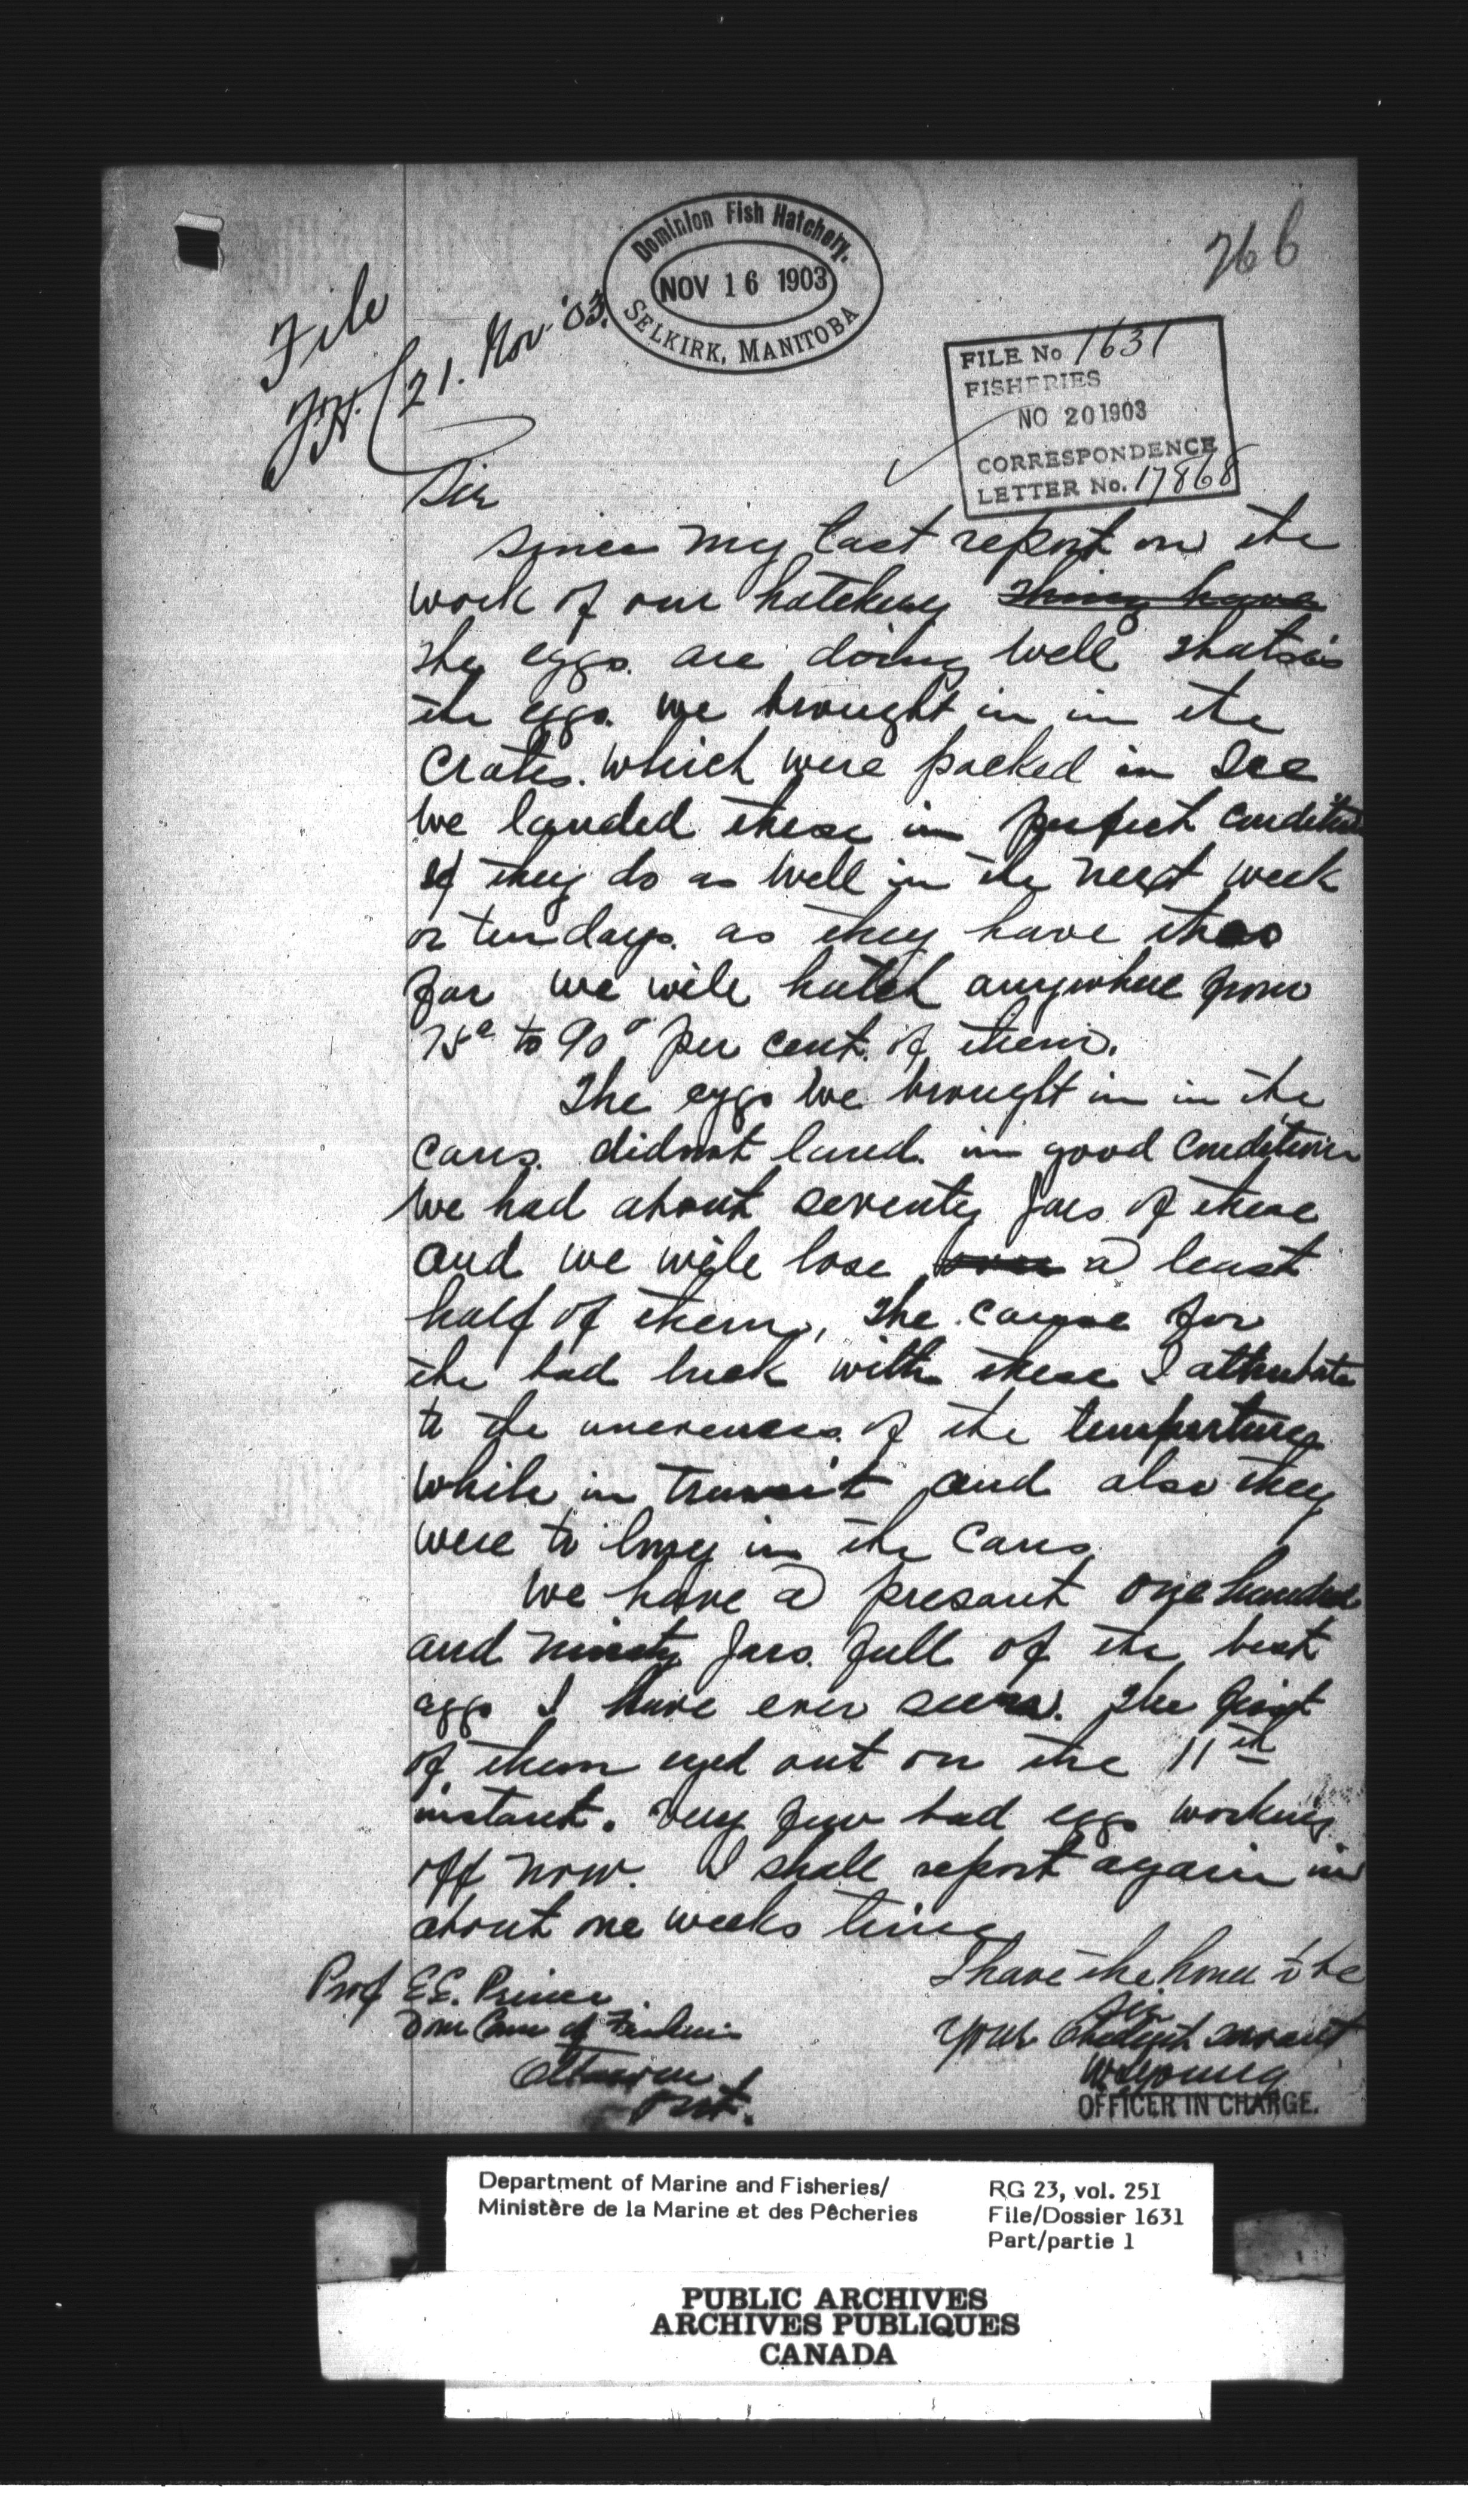 Dominion Fish Hatchery.
NOV 16 1903
SELKIRK, MANITOBA
266
File
21. Nov '03.
FILE No 1631
FISHERIES
NO 20 1903
CORRESPONDENCE
LETTER No. 17868
Sir
Since my last report on the
work of our hatchery
the eggs are doing well thats is
the eggs. we brought in in the
crates. which were packed in Ice
we landed these in perfect condition
if they do as well in the next week
or ten days. as they have thus
far we will hatch anywhere from
75° to 90° per cent. of them.
The eggs we brought in in the
cans. didnot land. in good condition
we had about seventy Jars of these
and we will lose over a least
half of them, The cause for
the bad luck with these I attribute
to the uneveness of the tempertures
while in transit and also they
were to long in the cans
We have a presant one hundred
and ninety Jars. full of the best
eggs I have ever seen. The first
of them eyed out on the 11th
instant. very few bad eggs working
off now. I shall report again in
about one weeks time
I have the honor to be
Sir
Your Obedient servant
W. S. Young
OFFICER IN CHARGE.
Prof E.E. Prince
Dom Com of Fisheries
Ottawa
Ont.
Department of Marine and Fisheries/
Ministère de la Marine et des Pêcheries
RG 23, vol. 251
File/Dossier 1631
Part/partie 1
PUBLIC ARCHIVES
ARCHIVES PUBLIQUES
CANADA